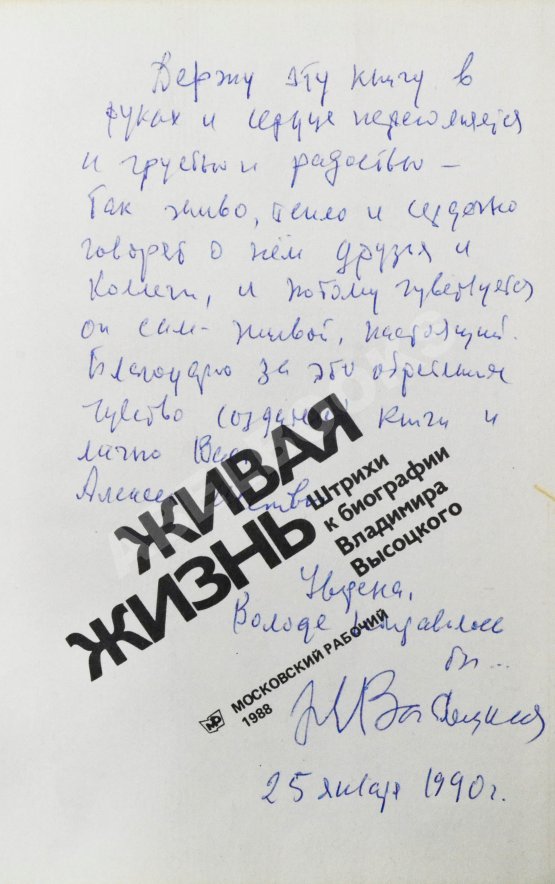 Держу эту книгу в
руках и сердце переполняется
и грустью и радостью –
так живо, тепло и сердечно
говорят о нём друзья и
коллеги, и потому чувствуется
он сам - живой, настоящий.
Благодарю за это обретённое
чувство создателей книги и
лично Вас,
Алексей
ЖИВАЯ
ЖИЗНЬ
Штрихи
к биографии
Владимира
Высоцкого
Уверена,
Володе понравилось
бы...
МОСКОВСКИЙ РАБОЧИЙ
1988
Высоцкая
25 января 1990 г.